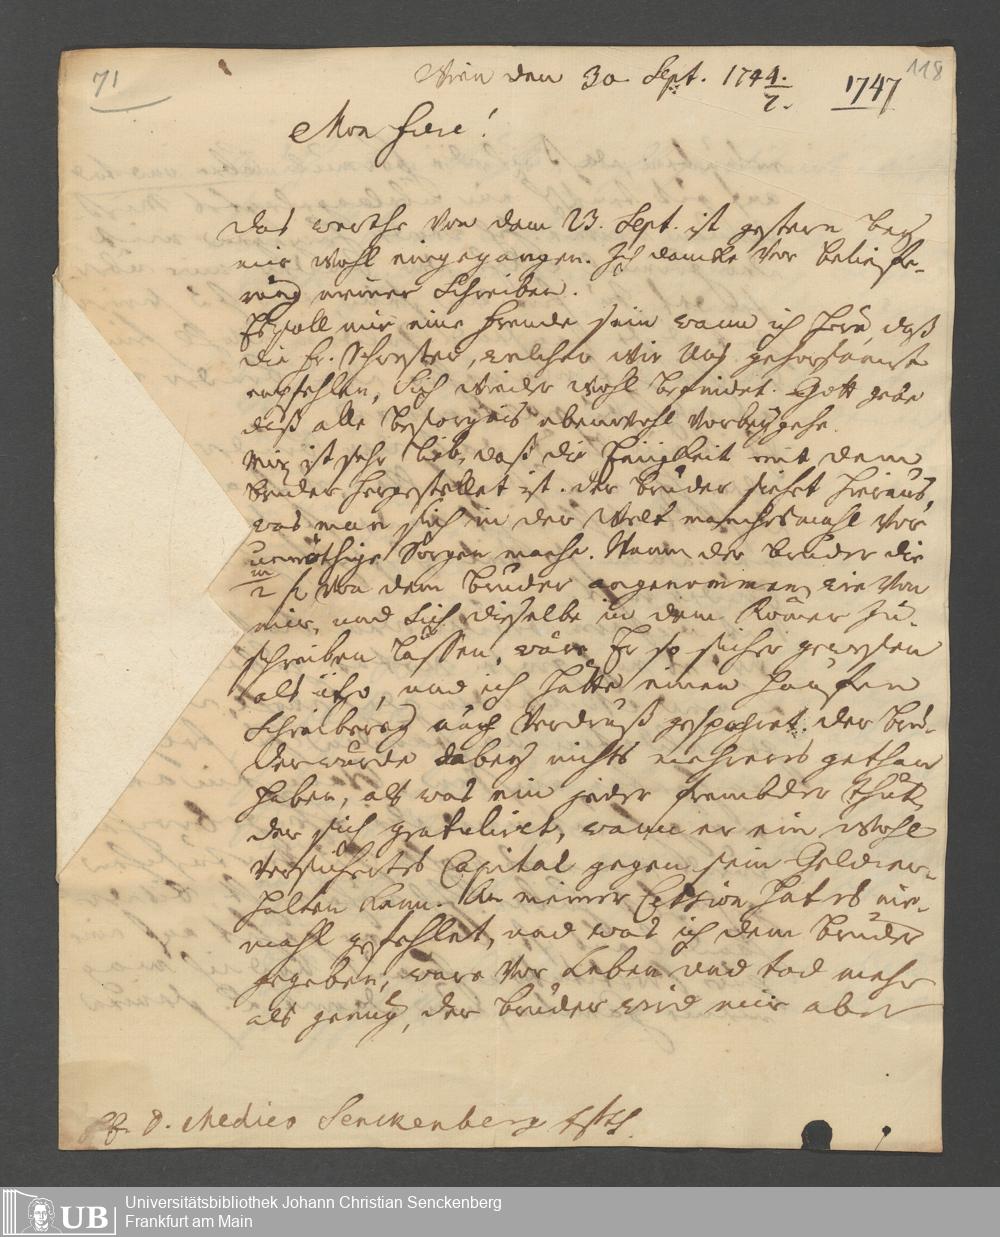 71
118
Wien den 30. Sept. 1744.
7.
1747
Mon frere!
Das werthe von dem 23. Sept. ist gestern bey
mir wohl eingegangen. Ich dancke vor beliefe-
rung meiner Schreiben.
Es soll mir eine Freude sein wann ich höre, daß
die Fr. Schwester, welcher wir uns gehorsamst
empfehlen, sich wieder wohl befindet. Gott gebe
daß alle besorgnis ebenwohl vorbeygehe.
Mir ist sehr lieb, daß die Einigkeit mit dem
bruder hergestellet ist. der bruder siehet hieraus,
was man sich in der Welt manchesmahl vor
unnöthige Sorgen mache. Wann der bruder die
2 von dem bruder angenommen, wie von
mir, und sich dieselbe in dem Römer zu-
schreiben lassen, wäre Er so sicher gewesen
als itzo, und ich hätte einen hauffen
Schreiberey auch Verdruß gespahret. der bru-
der wurde dabey nichts mehrers gethan
haben, als was ein jeder frembder thut,
der sich gratuliret, wann er ein wohl
versichertes Capital gegen sein Geld er-
halten kann. An meiner Cession hat es nie-
mahl gefehlet, und was ich dem bruder
gegeben, ware vor Leben und tod mehr
als genug, der bruder wird mir aber
D. Medico Senckenberg
UB
Universitätsbibliothek Johann Christian Senckenberg
Frankfurt am Main